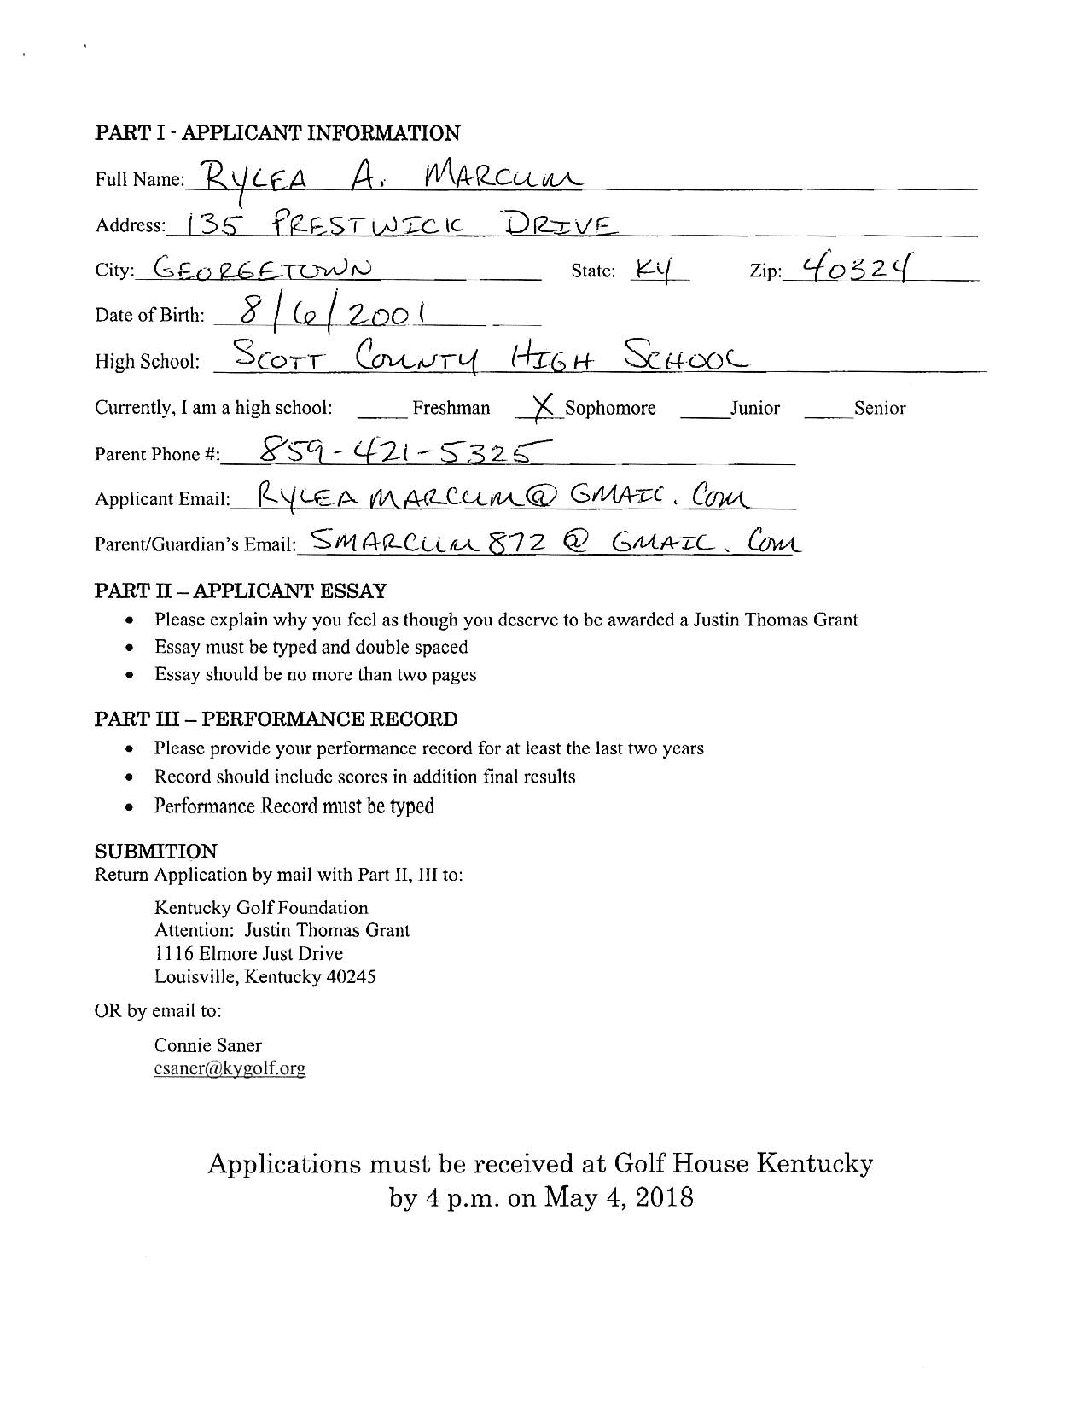 PART I - APPLICANT INFORMATION
Full Name: RYLEA A. MARCUM
Address: 135 PRESTWICK DRIVE
City: GEORGETOWN State: KY Zip: 40324
Date of Birth: 8/6/2001
High School: SCOTT COUNTY HIGH SCHOOL
Currently, I am a high school: ____ Freshman X Sophomore ____ Junior ____ Senior
Parent Phone #: 859-421-5325
Applicant Email: RYLEAMARCUM@GMAIL.COM
Parent/Guardian's Email: SMARCUM872@GMAIL.COM
PART II – APPLICANT ESSAY
• Please explain why you feel as though you deserve to be awarded a Justin Thomas Grant
• Essay must be typed and double spaced
• Essay should be no more than two pages
PART III – PERFORMANCE RECORD
• Please provide your performance record for at least the last two years
• Record should include scores in addition final results
• Performance Record must be typed
SUBMITION
Return Application by mail with Part II, III to:
Kentucky Golf Foundation
Attention: Justin Thomas Grant
1116 Elmore Just Drive
Louisville, Kentucky 40245
OR by email to:
Connie Saner
csaner@kygolf.org
Applications must be received at Golf House Kentucky
by 4 p.m. on May 4, 2018